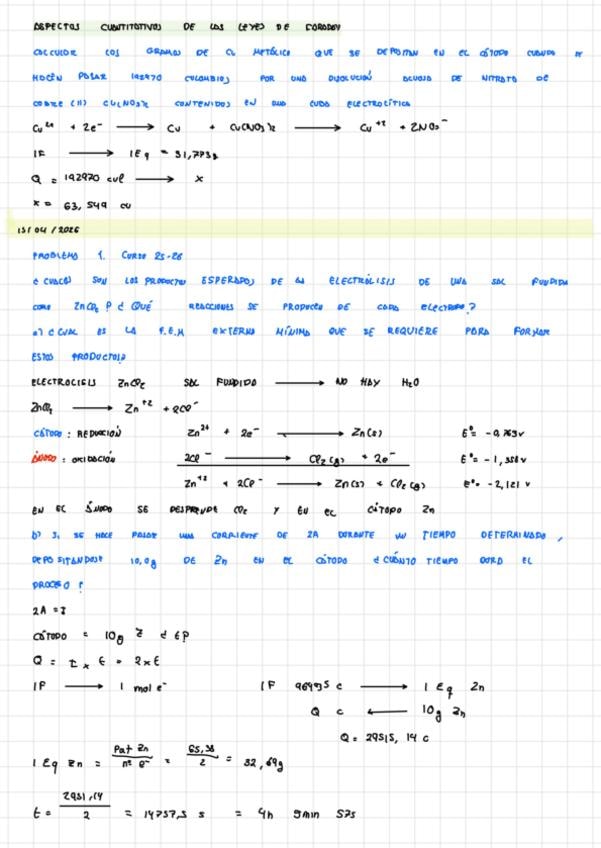 ASPECTOS CUANTITATIVOS DE LAS LEYES DE FARADAY
CALCULAR LOS GRAMOS DE Cu METÁLICO QUE SE DEPOSITAN EN EL CÁTODO CUANDO SE
HACEN PASAR 192970 CULOMBIOS POR UNA DISOLUCIÓN ACUOSA DE NITRATO DE
COBRE (II) CU(NO3)2 CONTENIDOS EN UNA CUBA ELECTROLÍTICA
Cu²⁺ + 2e⁻ ⟶ Cu + Cu(NO3)2 ⟶ Cu⁺² + 2NO3⁻
1F ⟶ 1Eq = 31,773g
Q = 192970 cul ⟶ x
x = 63,549 cu
15/04/2026
PROBLEMA 1. CURSO 25-26
¿ CUALES SON LOS PRODUCTOS ESPERADOS DE LA ELECTRÓLISIS DE UNA SAL FUNDIDA
COMO ZnCl2 ? ¿ QUÉ REACCIONES SE PRODUCEN DE CADA ELECTRODO?
a) ¿ CUAL ES LA F.E.M EXTERNA MÍNIMA QUE SE REQUIERE PARA FORMAR
ESTOS PRODUCTOS?
ELECTROLISIS ZnCl2 SAL FUNDIDO ⟶ NO HAY H2O
ZnCl2 ⟶ Zn⁺² + 2Cl⁻
CÁTODO : REDUCIÓN Zn²⁺ + 2e⁻ ⟶ Zn(s) E°= -0,763v
ÁNODO : OXIDACIÓN 2Cl⁻ ⟶ Cl2(g) + 2e⁻ E°= -1,358v
Zn⁺² + 2Cl⁻ ⟶ Zn(s) + Cl2(g) E°= -2,121 v
EN EL ÁNODO SE DESPRENDE Cl2 Y EN EL CÁTODO Zn
b) SI SE HACE PASAR UNA CORRIENTE DE 2A DURANTE UN TIEMPO DETERMINADO,
DEPOSITANDOSE 10,0g DE Zn EN EL CÁTODO ¿ CUÁNTO TIEMPO DURA EL
PROCESO ?
2A = I
CÁTODO = 10g Z ¿ t?
Q = I x t = 2 x t
1F ⟶ 1 mol e⁻ 1F 96485 c ⟶ 1 Eq Zn
Q c ⟵ 10g Zn
Q = 29515,14 c
1 Eq Zn = Pat Zn / nº e⁻ = 65,38 / 2 = 32,69g
t = 2951,14 / 2 = 14757,5 s = 4h 5min 57s